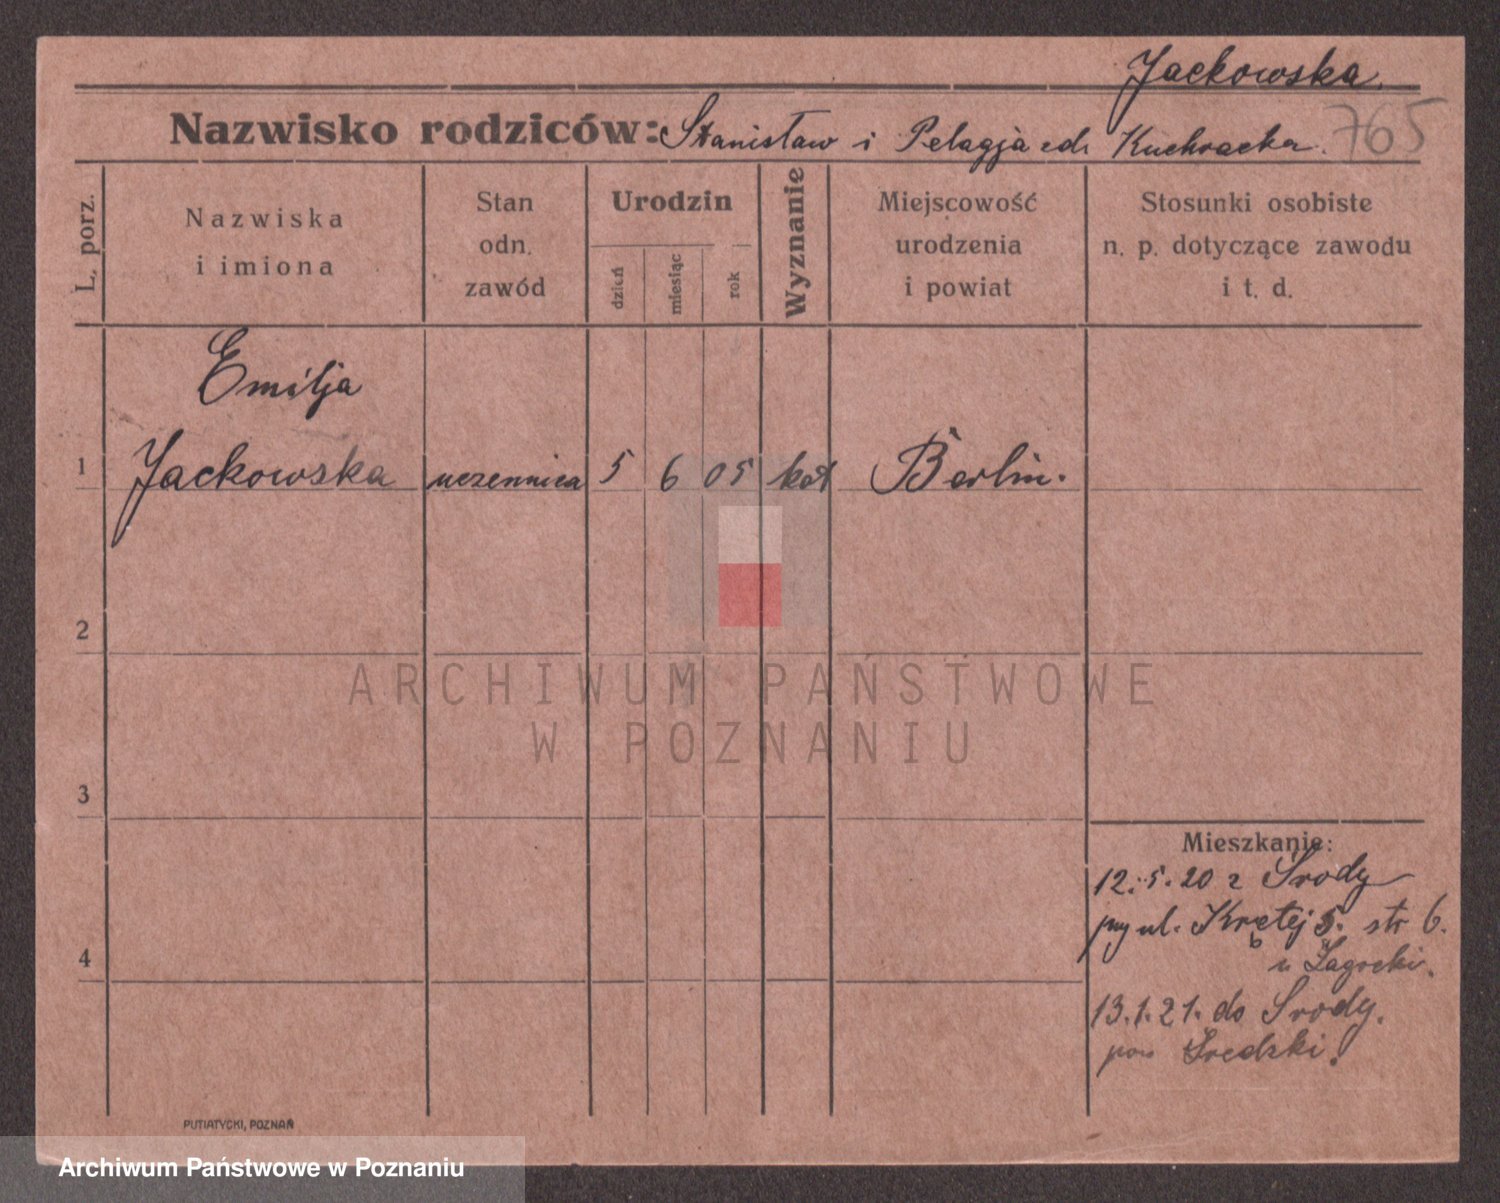 Jackowska
Nazwisko rodziców: Stanisław i Pelagja zd. Kuchracka.
765
L. porz.
Nazwiska
i imiona
Stan
odn.
zawód
Urodzin
dzień
miesiąc
rok
Wyznanie
Miejscowość
urodzenia
i powiat
Stosunki osobiste
n. p. dotyczące zawodu
i t. d.
Emilja
1 Jackowska uczennica 5 6 05 kat Berlin.
2
3
4
ARCHIWUM PAŃSTWOWE
W POZNANIU
Mieszkanie:
12.5.20 z Środy
przy ul. Krętej 5. str 6.
u Zagrocki.
13.1.21. do Środy.
pow Średzki.
PUTIATYCKI, POZNAŃ
Archiwum Państwowe w Poznaniu